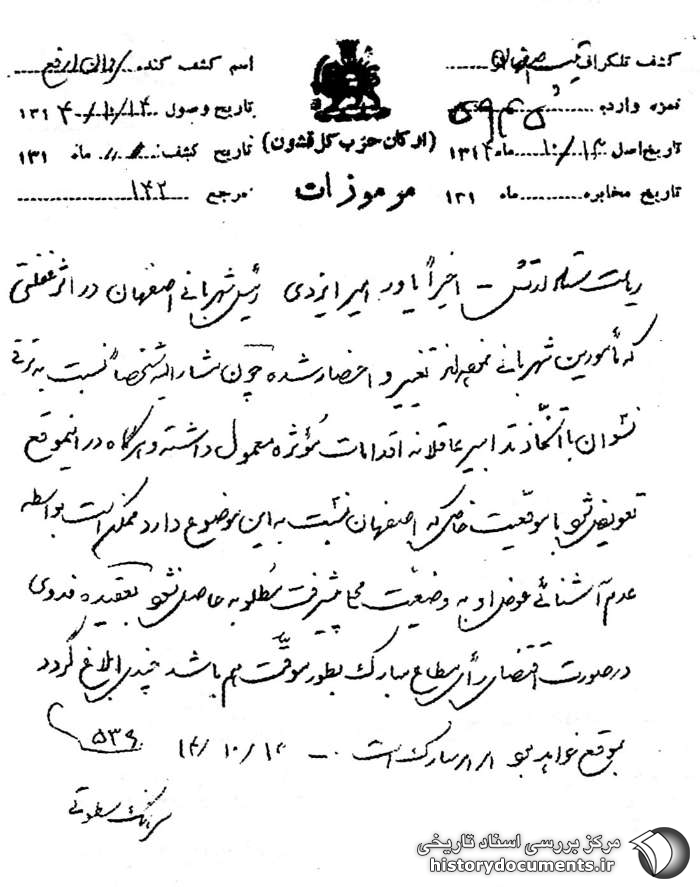 کشف تلگراف تیپ اصفهان
اسم کشف کننده
نمره وارده ۵۹۴۵
تاریخ وصول ۱۴/۱۰/۱۳۱۴
(ارکان حزب کل قشون)
تاریخ اصل ۱۴/۱۰ ماه ۱۳۱۴
تاریخ کشف ماه ۱۳۱
مرموزات
تاریخ مخابره ماه ۱۳۱
نمره مرجع ۱۴۲
ریاست ستاد ارتش – اخیراً یاور امیر ایزدی رئیس شهربانی اصفهان در اثر غفلتی
که مأمورین شهربانی نموده‌اند تغییر و احضار شده چون مشارالیه شخصاً نسبت به ترقی
نسوان با اتخاذ تدابیر عاقلانه اقدامات مؤثره معمول داشته و هرگاه در اینموقع
تعویض شود با موقعیت خاصی که اصفهان نسبت به این موضوع دارد ممکن است بواسطه
عدم آشنائی عوض او به وضعیت محل پیشرفت مطلوبه حاصل نشود بعقیده فدوی
در صورت اقتضای رأی مطاع مبارک بطور موقت هم باشد چندی ابلاغ گردد
بموقع خواهد بود امر امر مبارک است – ۱۴/۱۰/۱۴
۵۳۹
سرهنگ سطوتی
مرکز بررسی اسناد تاریخی
historydocuments.ir